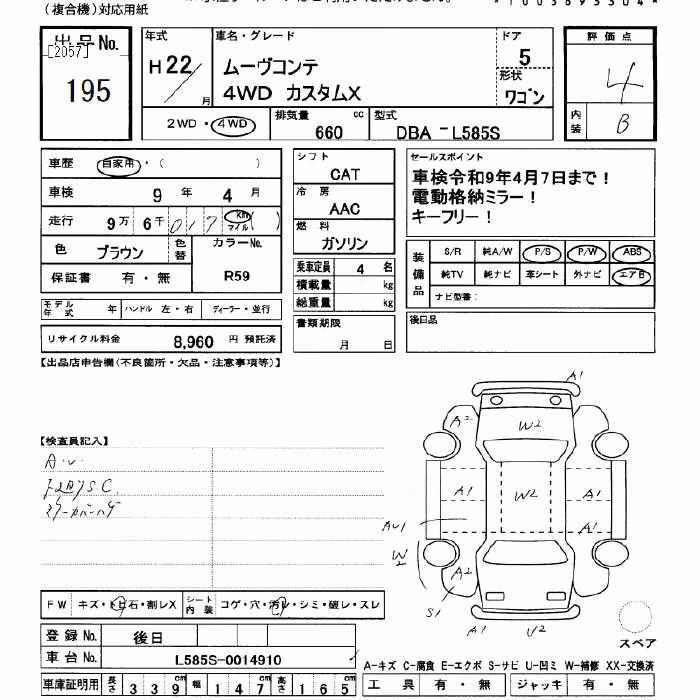 (複合機)対応用紙
出品No.
[2057]
195
年式
H22/
月
車名・グレード
ムーヴコンテ
4WD カスタムX
ドア
5
形状
ワゴン
評価点
4
内装
B
2WD・4WD
排気量
660
cc
型式
DBA -L585S
車歴
自家用・( )
車検
9 年 4 月
走行
9万 6千 017 km マイル ( )
色
ブラウン
色替
カラーNo.
R59
保証書
有・無
モデル年式
年
ハンドル 左・右
ディーラー・並行
リサイクル料金
8,960 円 預託済
シフト
CAT
冷房
AAC
燃料
ガソリン
乗車定員 4 名
積載量 kg
総重量 kg
書類期限
月 日
セールスポイント
車検令和9年4月7日まで！
電動格納ミラー！
キーフリー！
装備品
S/R 純A/W P/S P/W ABS
純TV 純ナビ 革シート 外ナビ エアB
ナビ型番：
後日品
【出品店申告欄(不良箇所・欠品・注意事項等)】
【検査員記入】
A1
A2
W2
A1
W2
A1
A1
A1
W2
A2
S1
A1
U2
スペア
FW
キズ・トビ石・割レX
シート内装
コゲ・穴・汚レ・シミ・破レ・スレ
登録No.
後日
車台No.
L585S-0014910
車庫証明用
長さ 339cm 幅 147cm 高さ 165cm
A-キズ C-腐食 E-エクボ S-サビ U-凹ミ W-補修 XX-交換済
工具 有・無 ジャッキ 有・無